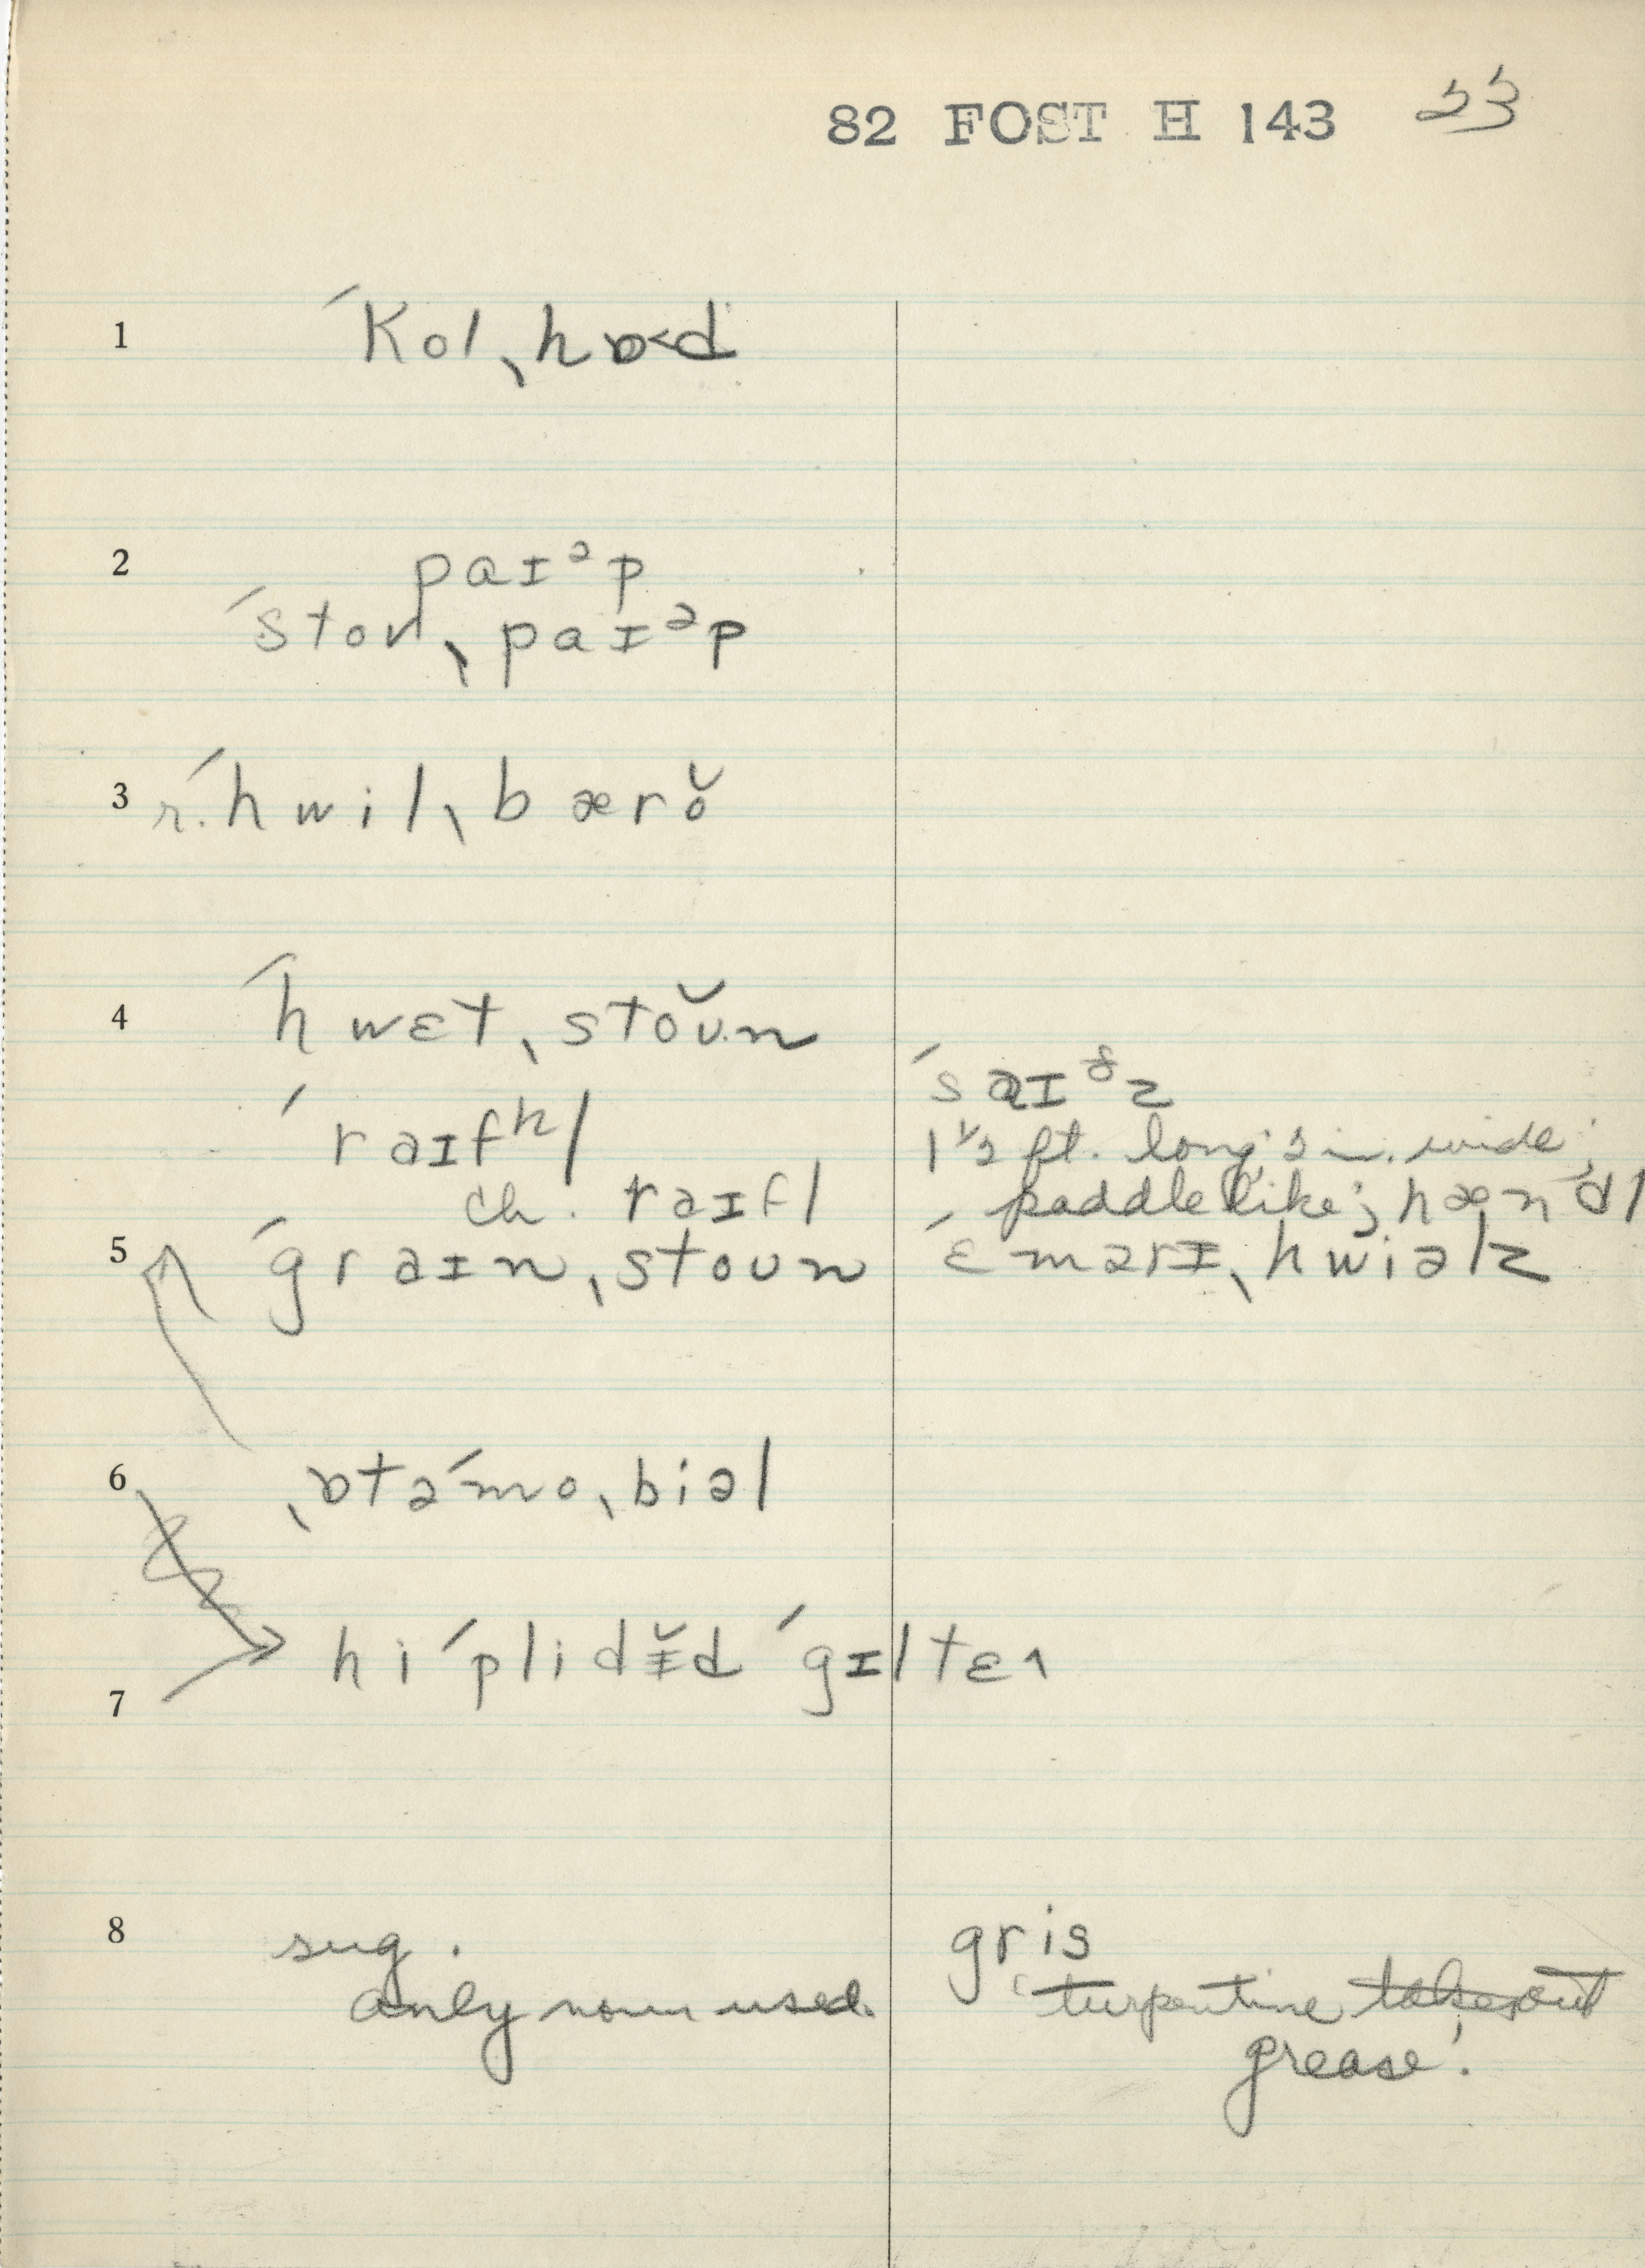 82 FOST H 143 23
1 ˊkol ˎhɒ<d
2 paɪᵊp
ˊstov ˎpaɪᵊp
3 r. ˊhwil ˎbærŏ
4 ˊhwɛt ˎstŏʊn
ˊraɪfʰl
ch. raɪfl
5 ˊgraɪn ˎstoʊn
ˊsaɪᵟz
1½ ft. long, 2 in. wide;
paddlelike; hænᵊdl
ˊɛmərɪ ˎhwiəlz
6 ˎɒtəˊmoˎbiəl
7 hi ˊplidɨ̆d ˊgɪlteɪ
8 sug.
only noun used.
gris
‘turpentine takes out
grease’.